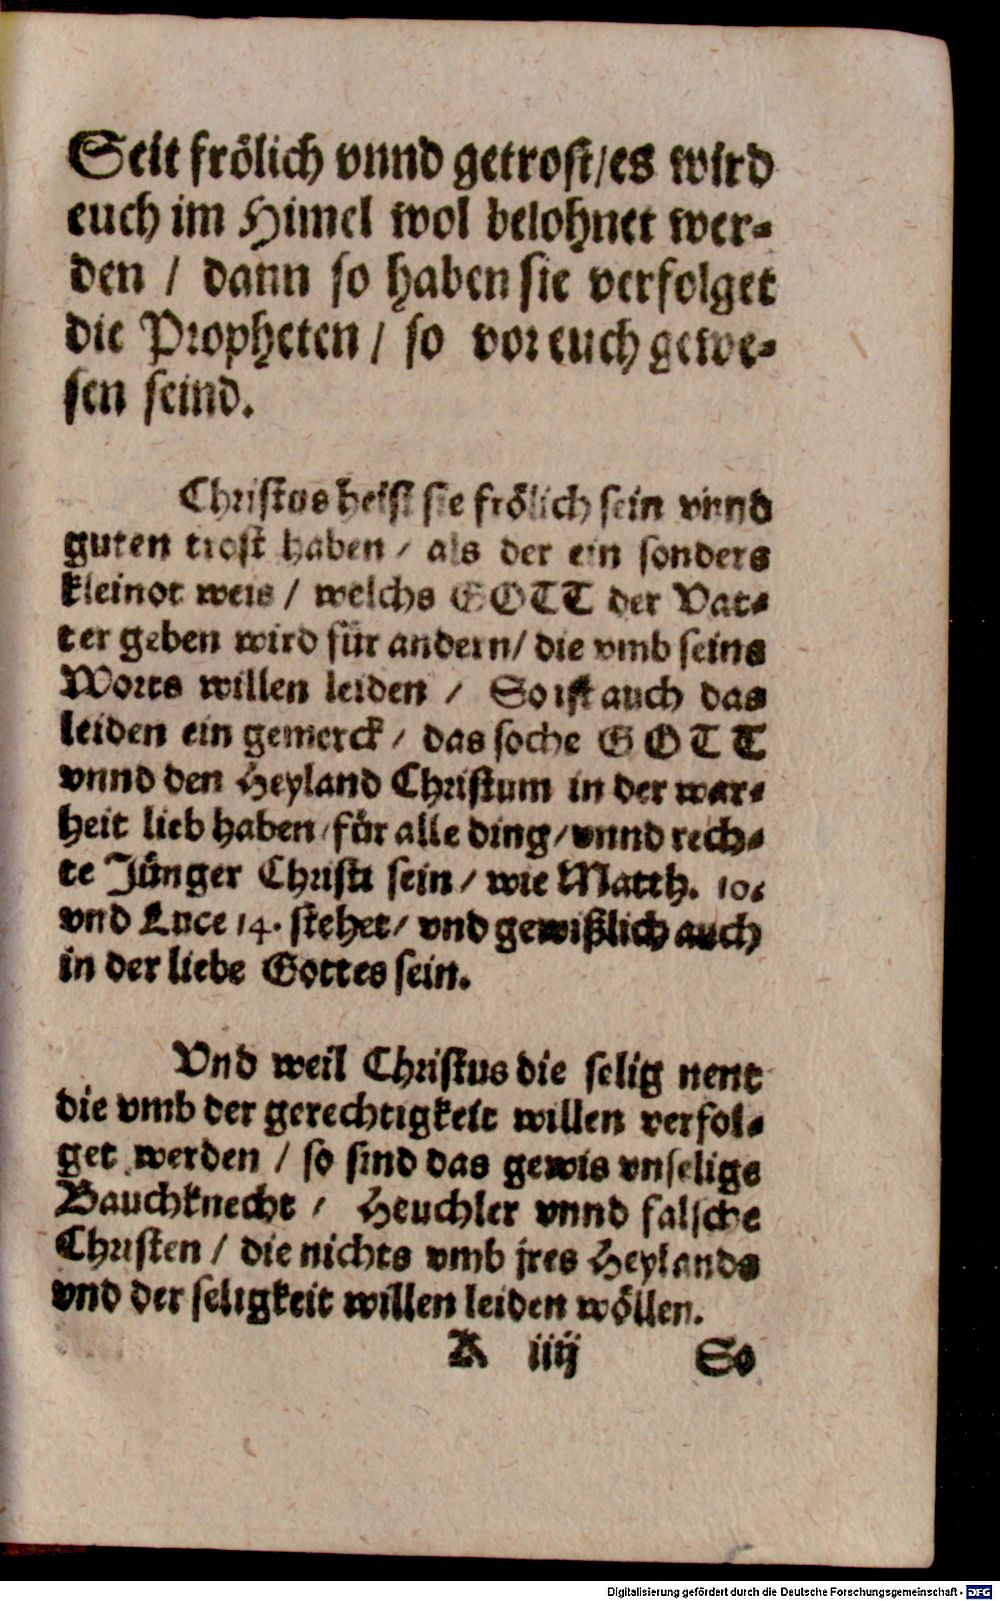 Seit frölich vnnd getrost/es wird
euch im Himel wol belohnet wer-
den / dann so haben sie verfolget
die Propheten / so vor euch gewe-
sen seind.
Christus heist sie frölich sein vnnd
guten trost haben / als der ein sonders
kleinot weis / welchs GOTT der Vat-
ter geben wird für andern/ die vmb seins
Worts willen leiden / So ist auch das
leiden ein gemerck / das solche GOTT
vnnd den Heyland Christum in der war-
heit lieb haben /für alle ding/vnnd rech-
te Jünger Christi sein / wie Matth. 10.
vnd Luce 14. stehet/ vnd gewißlich auch
in der liebe Gottes sein.
Vnd weil Christus die selig nent
die vmb der gerechtigkeit willen verfol-
get werden / so sind das gewis vnselige
Bauchknecht / Heuchler vnnd falsche
Christen / die nichts vmb jres Heylands
vnd der seligkeit willen leiden wöllen.
K iiij So
Digitalisierung gefördert durch die Deutsche Forschungsgemeinschaft - DFG